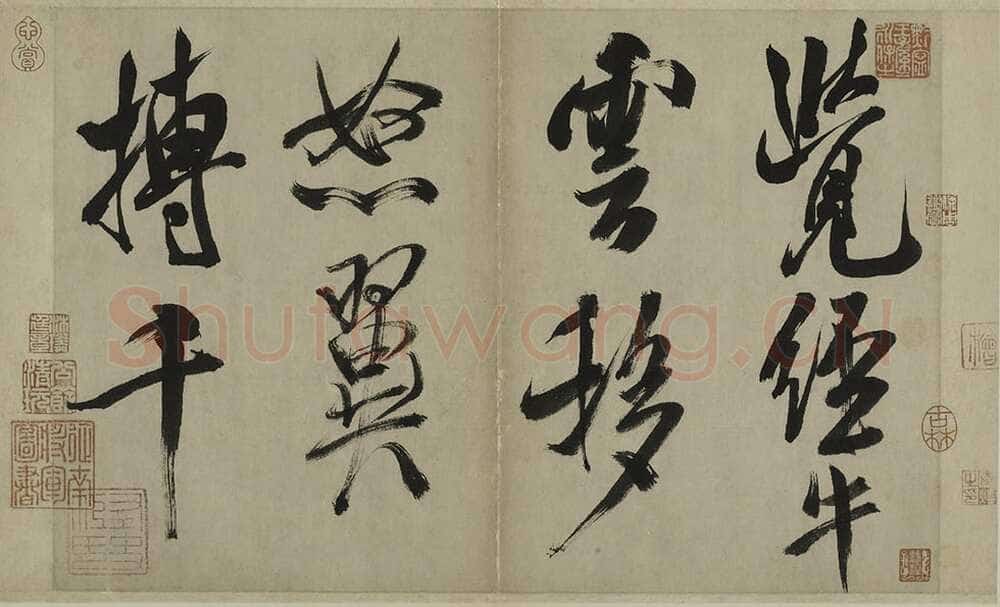 覺經牛
雲移
怒翼
搏千
Shufawang.CN